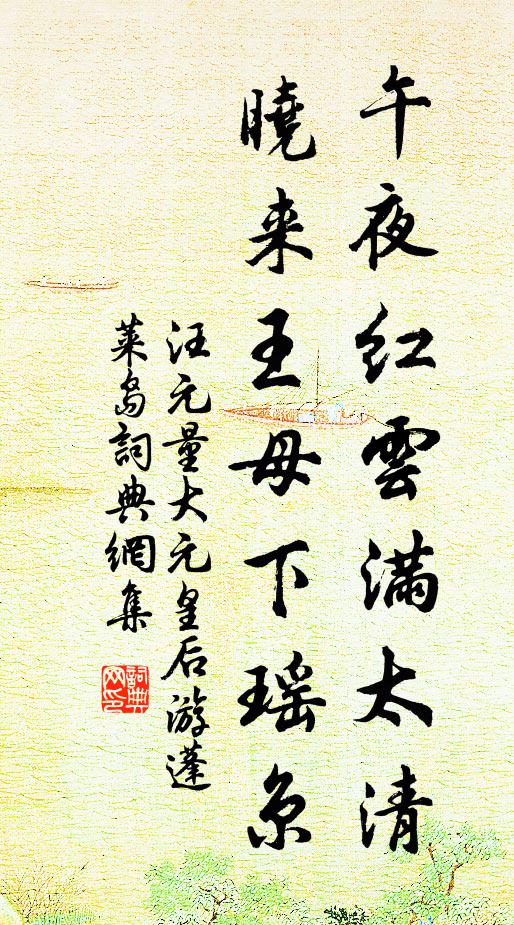 午夜红雲满太清
曉来王母下瑶京
汪元量大元皇后游蓬
菜岛詞典網集
詞典
网印